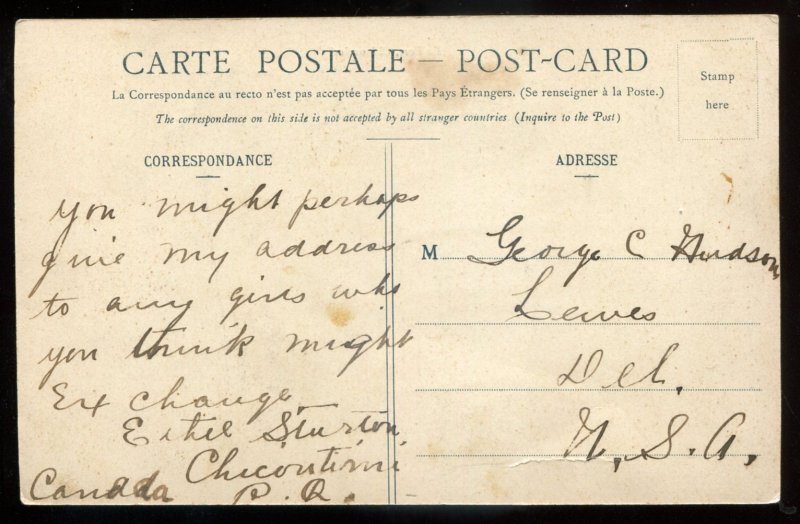 CARTE POSTALE — POST-CARD
La Correspondance au recto n'est pas acceptée par tous les Pays Étrangers. (Se renseigner à la Poste.)
The correspondence on this side is not accepted by all stranger countries (Inquire to the Post)
Stamp
here
CORRESPONDANCE
you might perhaps
give my address
to any girls who
you think might
Ex change.
Ethel Sturton,
Chicoutimi
Canada P.Q.
ADRESSE
M George C Hudson,
Lewes
Del.
U, S. A,